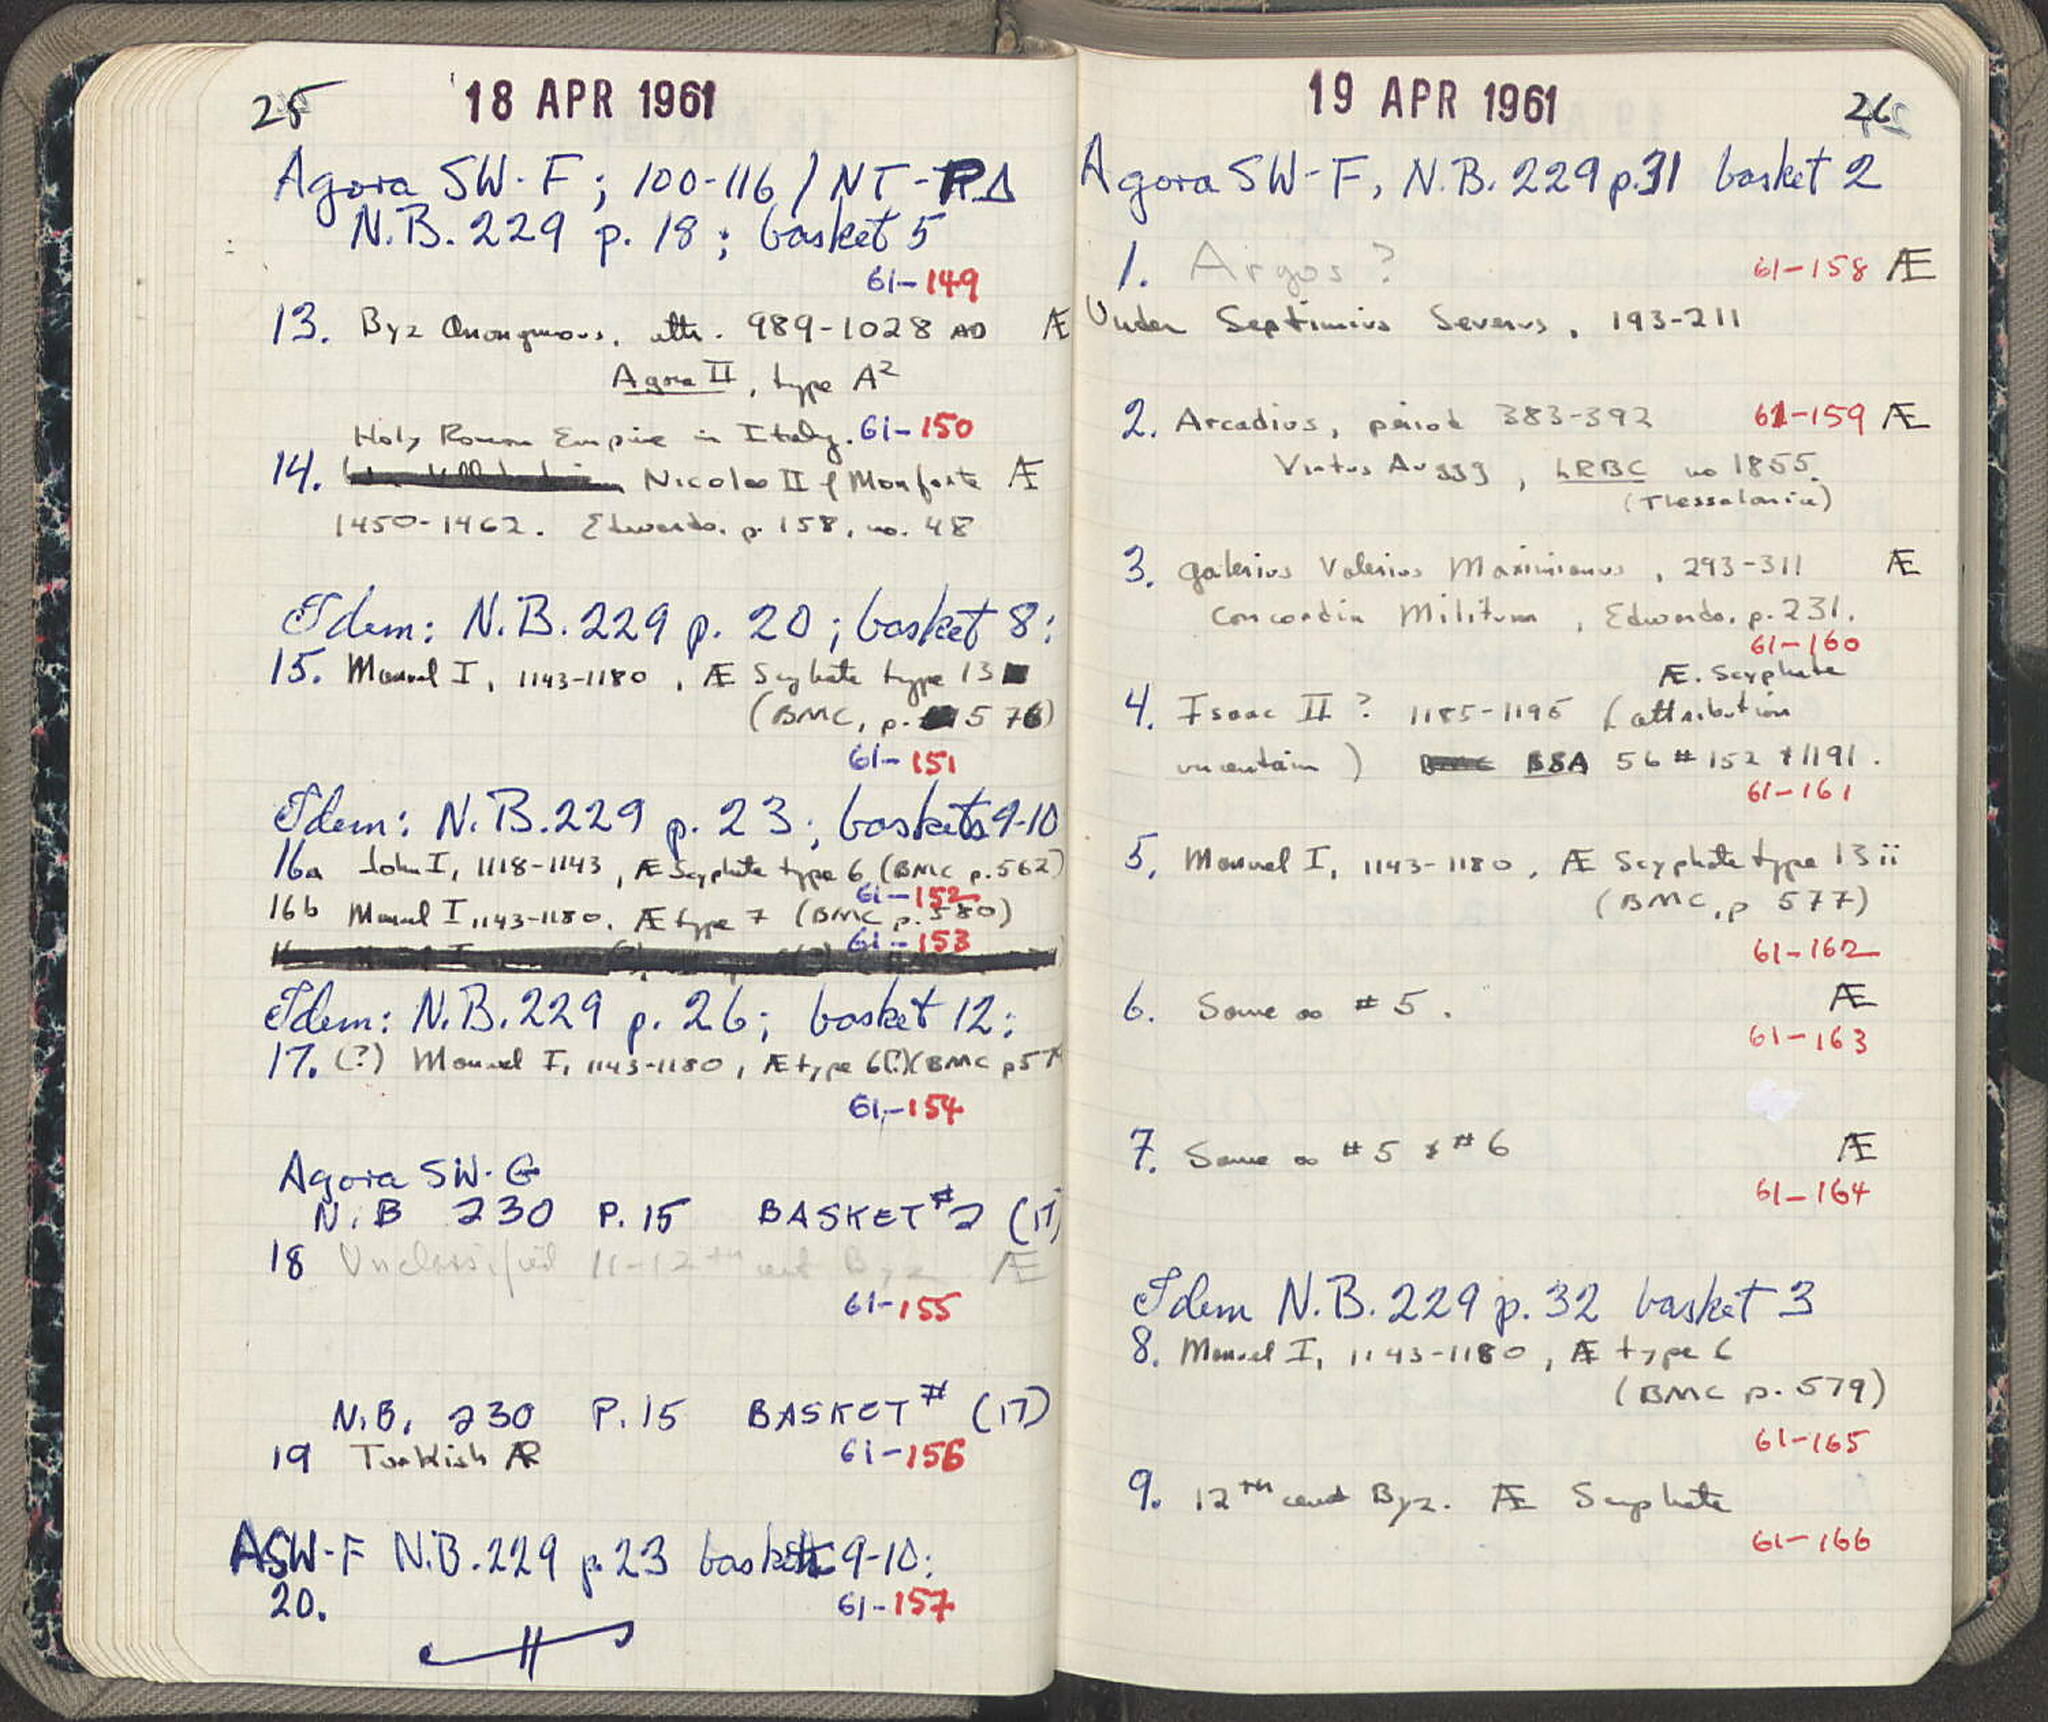 25
18 APR 1961
Agora SW-F; 100-116 / NT-ΡΔ
N.B. 229 p. 18; basket 5
61-149
13. Byz Anonymous, attr. 989-1028 AD Æ
Agora II, type A²
Holy Roman Empire in Italy. 61-150
14. Nicolas II of Monforte Æ
1450-1462. Edwards, p. 158, no. 48
Idem: N.B. 229 p. 20; basket 8:
15. Manuel I, 1143-1180, Æ Scyphate type 13
(BMC, p. 576)
61-151
Idem: N.B. 229 p. 23; baskets 9-10
16a John I, 1118-1143, Æ Scyphate type 6 (BMC p. 562)
61-152
16b Manuel I, 1143-1180. Æ type 7 (BMC p. 580)
61-153
Idem: N.B. 229 p. 26; basket 12:
17. (?) Manuel I, 1143-1180, Æ type 6(?)(BMC p 57
61-154
Agora SW-G
N.B 230 P. 15 BASKET #2 (17)
18 Unclassified 11-12th cent Byz Æ
61-155
N.B. 230 P. 15 BASKET # (17)
19 Turkish AR 61-156
ASW-F N.B. 229 p. 23 baskets 9-10:
20. 61-157
19 APR 1961
26
Agora SW-F, N.B. 229 p. 31 basket 2
1. Argos? 61-158 Æ
Under Septimius Severus, 193-211
2. Arcadius, period 383-392 61-159 Æ
Virtus Auggg, LRBC no 1855.
(Thessalonica)
3. Galerius Valerius Maximianus, 293-311 Æ
Concordia Militum, Edwards, p. 231.
61-160
Æ. Scyphate
4. Isaac II? 1185-1195 (attribution
uncertain) BMC BSA 56 # 152 + 1191.
61-161
5. Manuel I, 1143-1180, Æ Scyphate type 13 ii
(BMC, p 577)
61-162
6. Same as # 5. Æ
61-163
7. Same as # 5 & # 6 Æ
61-164
Idem N.B. 229 p. 32 basket 3
8. Manuel I, 1143-1180, Æ type 6
(BMC p. 579)
61-165
9. 12th cent Byz. Æ Scyphate
61-166